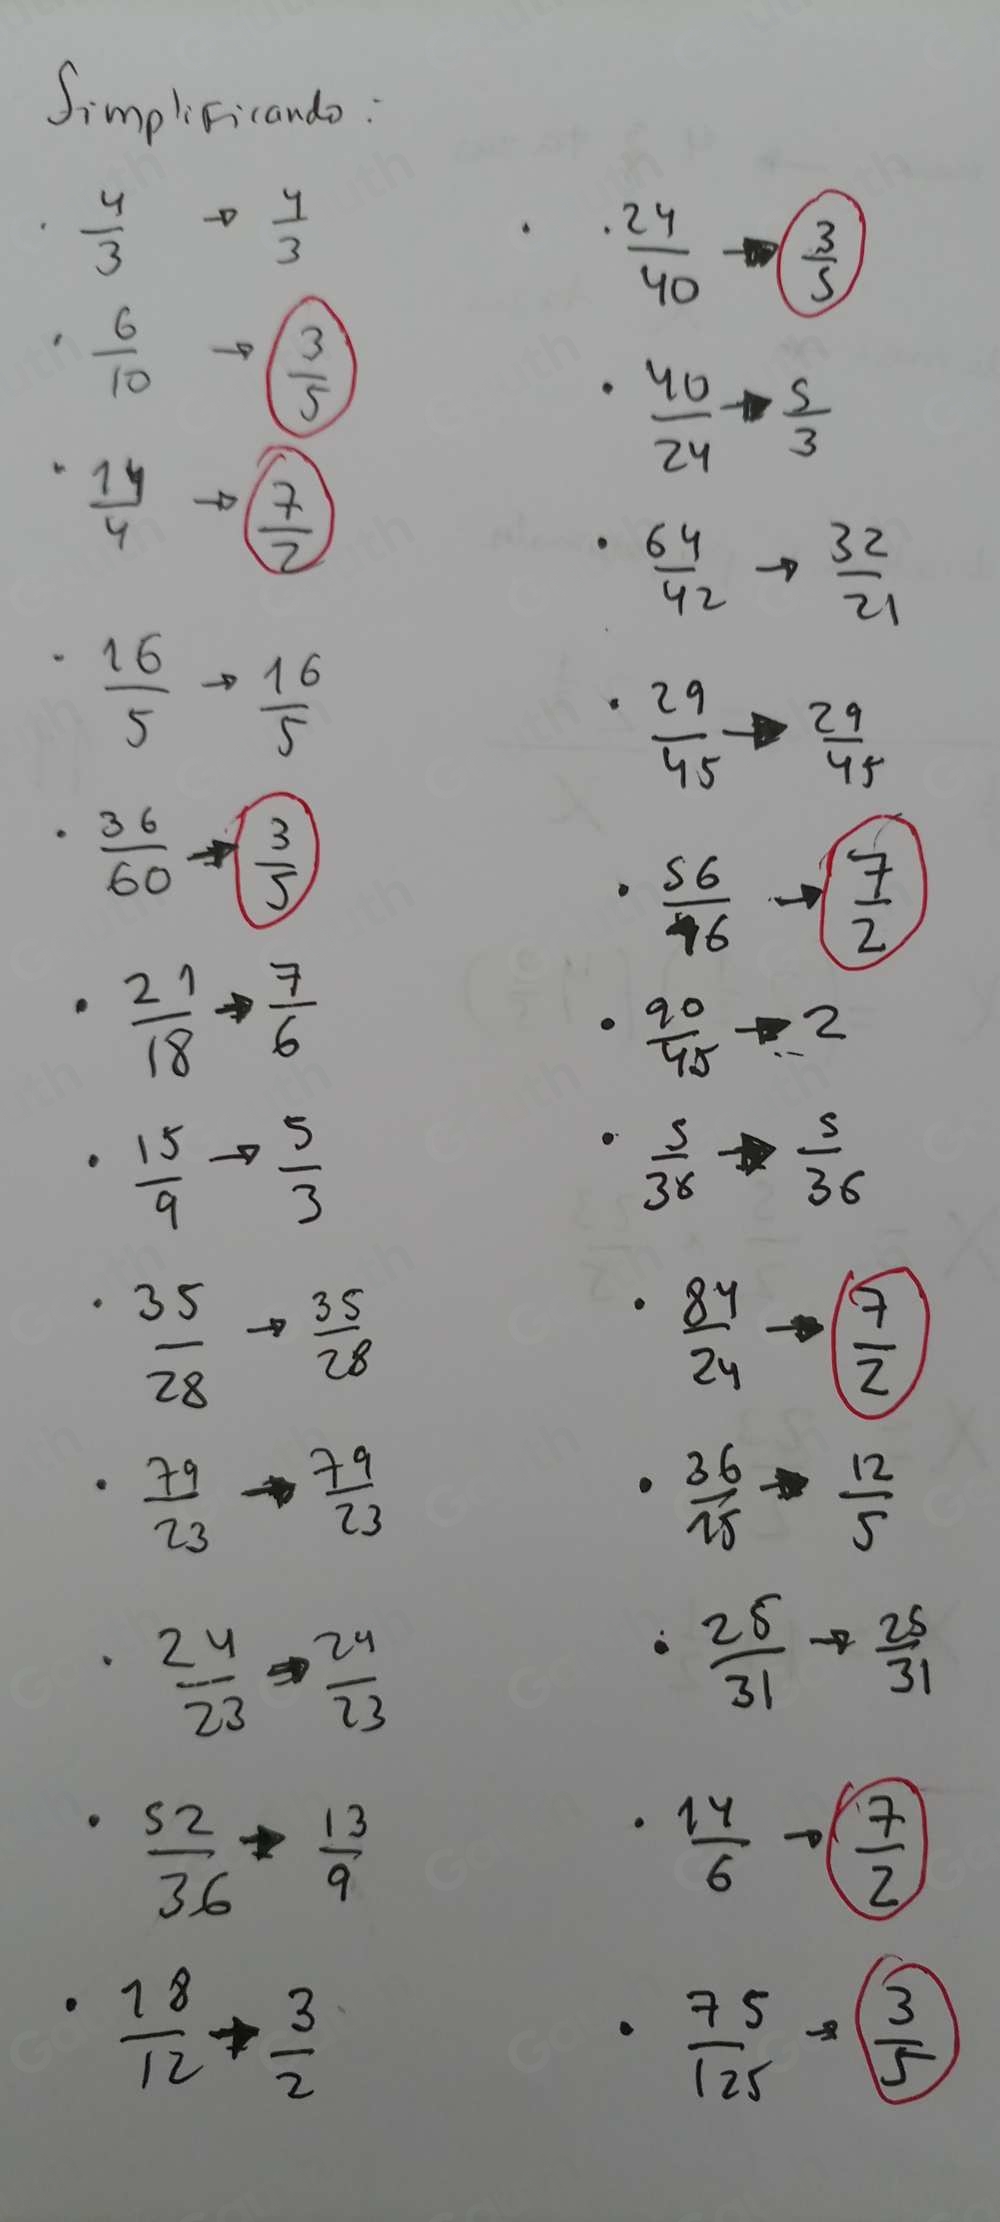 Simplificando:
· 4/3 → 4/3
· 6/10 → 3/5
· 14/4 → 7/2
· 16/5 → 16/5
· 36/60 → 3/5
· 21/18 → 7/6
· 15/9 → 5/3
· 35/28 → 35/28
· 79/23 → 79/23
· 24/23 → 24/23
· 52/36 → 13/9
· 18/12 → 3/2
· 24/40 → 3/5
· 40/24 → 5/3
· 64/42 → 32/21
· 29/45 → 29/45
· 56/16 → 7/2
· 90/45 → 2
· 5/36 → 5/36
· 84/24 → 7/2
· 36/15 → 12/5
· 25/31 → 25/31
· 14/6 → 7/2
· 75/125 → 3/5